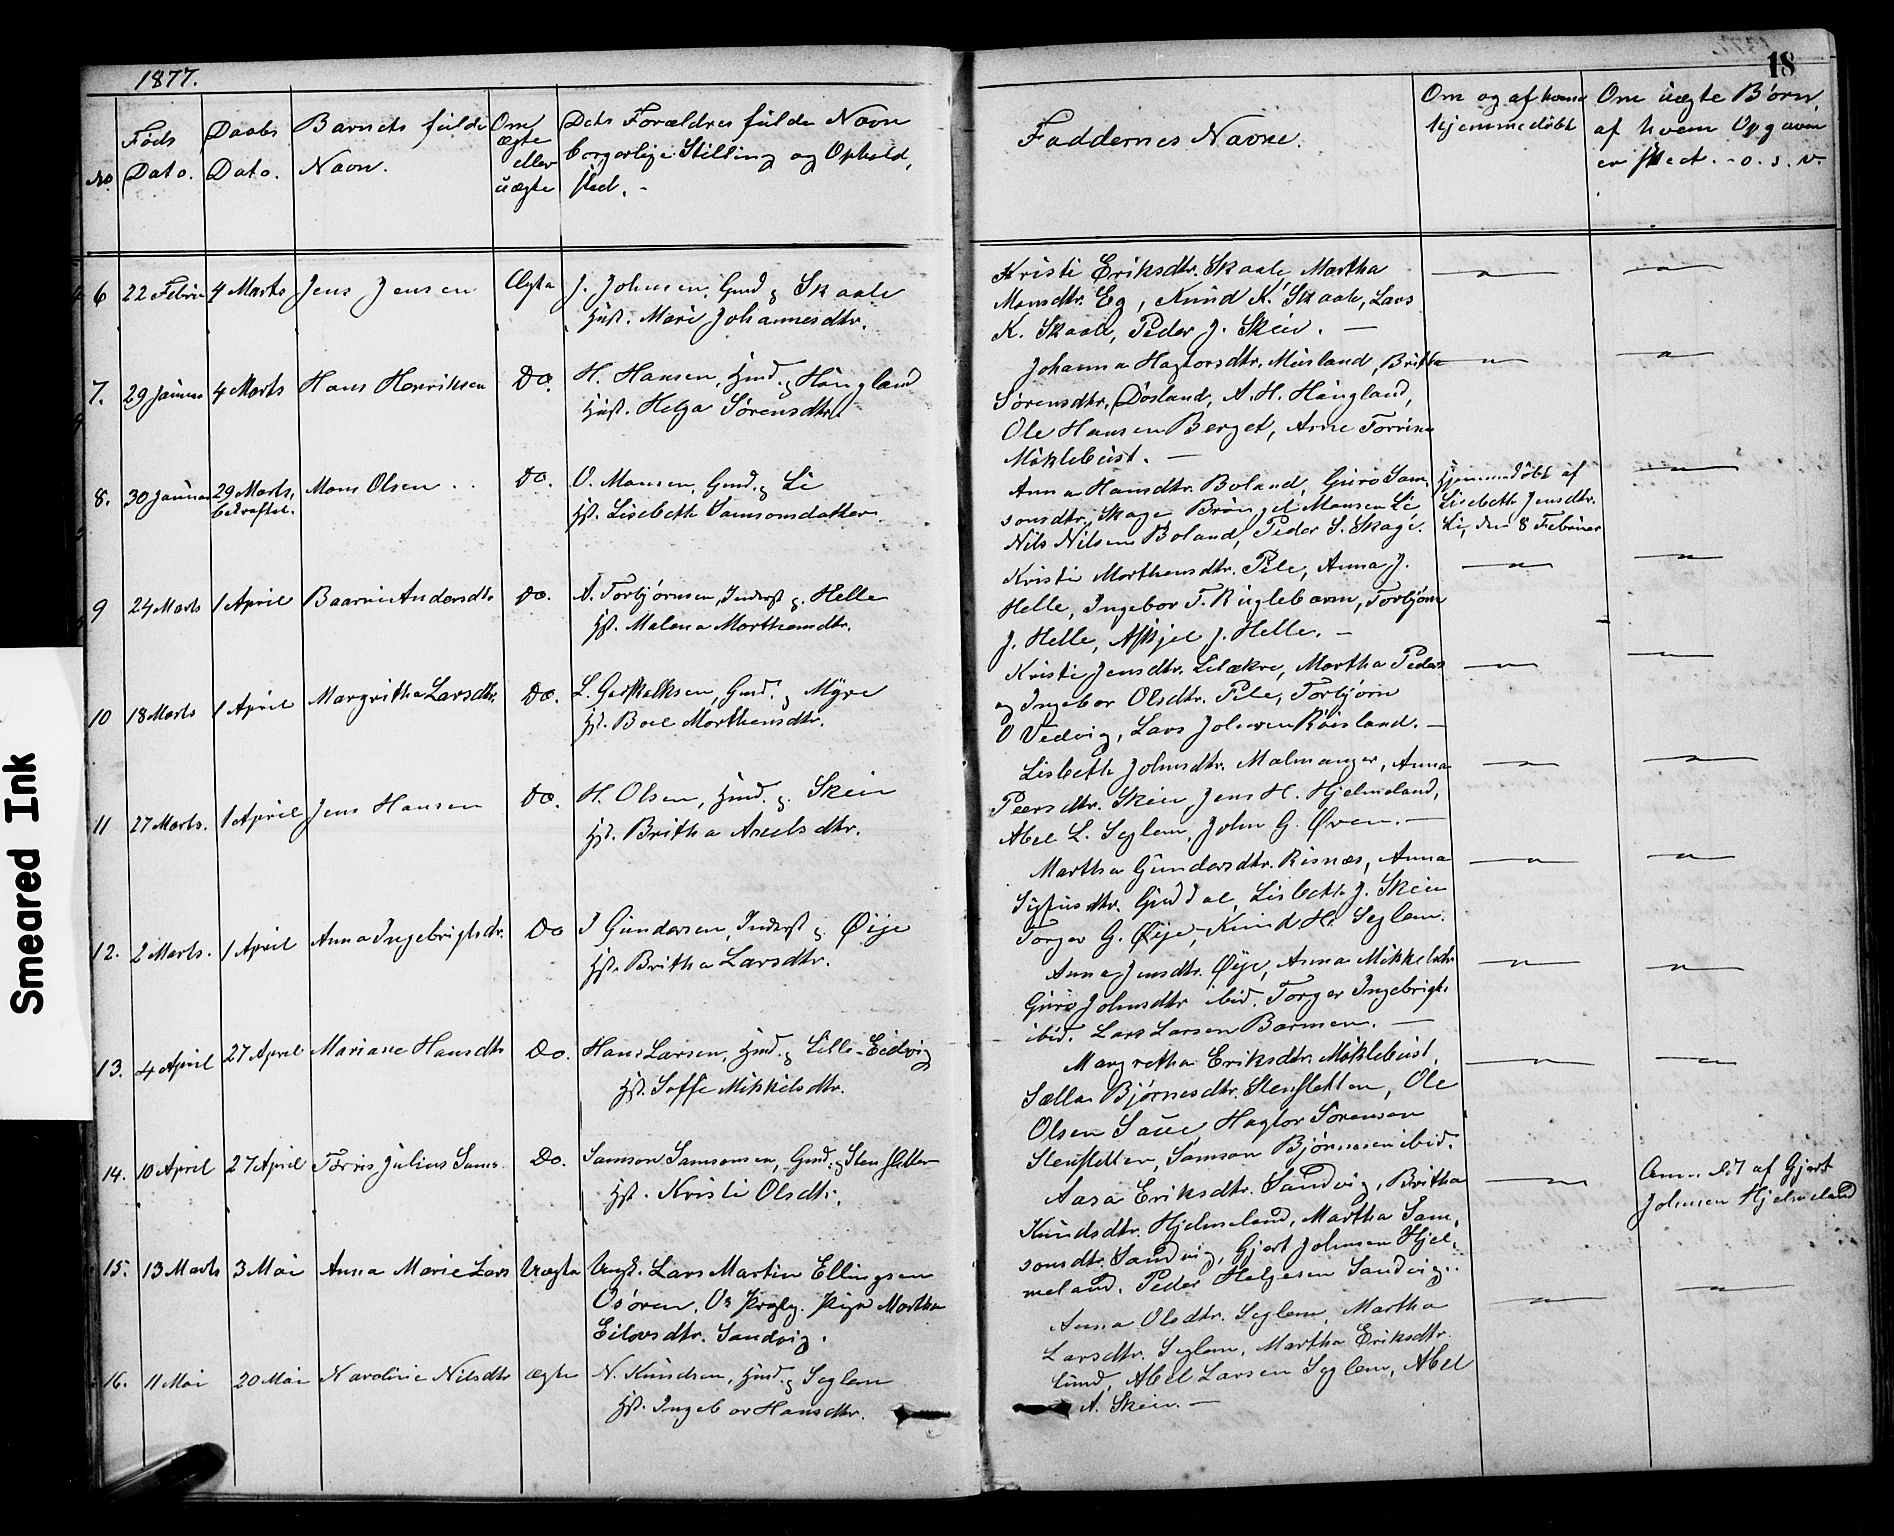 1877.
18
No.
Føds Dato.
Daabs Dato.
Barnets fulde Navn.
Om ægte eller uægte
Dets Forældres fulde Navn
borgerlige Stilling og Opholds
sted. -
Faddernes Navne.
Om og af hvem
hjemmedøbt
Om uægte Børn,
af hvem Opgaven
er skeet. - o. s. v.
6 22 Februa 4 Marts Jens Jensen Ægte J. Johnsen, Gmd. Skaale
Hust. Mari Johannesdtr.
Kristi Eriksdtr. Skaale, Martha
Monsdtr. Eg, Knud K. Skaale, Lars
K. Skaale, Peder J. Skeie. —
7. 29 Januar 4 Marts Hans Henriksen Do. H. Hansen, Hmd. Haugland
Hust. Helga Sørensdtr.
Johanna Hagtorsdtr. Musland, Britha
Sørensdtr. Døsland, A. H. Haugland,
Ole Hansen Berget, Arne Torris
Møklebust. —
8. 30 Januar 29 Marts, bekræftet. Mons Olsen Do. O. Monsen, Gmd. Li
Hst. Lisebeth Samsonsdatter.
Anna Hansdtr. Boland, Guro Sam
sonsdtr. Skage Brøngel Monsen Li
Nils Nilsen Boland, Peder S. Skage.
Hjemmedøbt af
Lisebeth Jensdtr.
Li, den 8 Februar
9 24 Marts 1 April Baarni Andersdtr Do. A. Torbjørnsen, Inderst Helle
Hst. Malena Morthensdtr.
Kristi Morthensdtr. Pile, Anna J.
Helle, Ingebor T. Ruglebarm, Torbjørn
J. Helle, Askjel J. Helle. —
10 18 Marts 1 April Margritha Larsdtr. Do. L. Godskalksen, Gmd. Myre
Hst. Boel Morthensdtr.
Kristi Jensdtr. Lilækre, Martha Peders
og Ingebor Olsdtr. Pile, Torbjørn
O Vedvig, Lars Johnsen Røisland. —
11 27 Marts. 1 April Jens Hansen Do. H. Olsen, Hmd. Skeie
Hst. Britha Axelsdtr.
Lisbeth Johnsdtr. Malmanger, Anna
Peersdtr. Skeie, Jens H. Hjelmeland,
Abel L. Seglem, John G. Øren. —
12. 2 Marts. 1 April Anna Ingebrigtsdtr. Do I Gundersen, Inderst Øije
Hst. Britha Larsdtr.
Martha Gundersdtr. Risnæs, Anna
Sigfusdtr. Guddal, Lisbeth J. Skeie
Torger G. Øije, Knud H. Seglem.
13. 4 April 27 April Mariane Hansdtr Do. Hans Larsen, Hmd. Lille-Eidvig
Hst. Soffi Mikkelsdtr.
Anna Jensdtr. Øije, Anna Mikkelsdtr
Guro Johnsdtr ibid. Torger Ingebrigts
ibid. Lars Larsen Barmen. —
14. 10 April 27 April Torris Julius Sams. Do. Samson Samsonsen, Gmd. Stensletten
Hst. Kristi Olsdtr.
Margretha Eriksdtr. Møklebust,
Sella Bjørnesdtr. Stensletten, Ole
Olsen Saue Hagtor Sørensen
Stensletten, Samson Bjørnesen ibid.
15. 13 Marts 3 Mai Anna Marie Lars Uægte Ungk. Lars Martin Ellingsen
Osøren, Os Prgj. Pige Martha
Eilovsdtr. Sandvig.
Aasa Eriksdtr. Sandvig, Britha
Knudsdtr. Hjelmeland, Martha Sam,
sonsdtr. Sandvig, Gjert Johnsen Hjel,
meland, Peder Helgesen Sandvig.
Anmeldt af Gjert
Johnsen Hjelmeland
16. 11 Mai 20 Mai Karoline Nilsdtr ægte N. Knudsen, Hmd. Seglem
Hst. Ingebor Hansdtr.
Anna Olsdtr. Seglem, Martha
Larsdtr. Seglem, Martha Eriksdtr.
Lund, Abel Larsen Seglem, Abel
A. Skeie. —
Smeared Ink